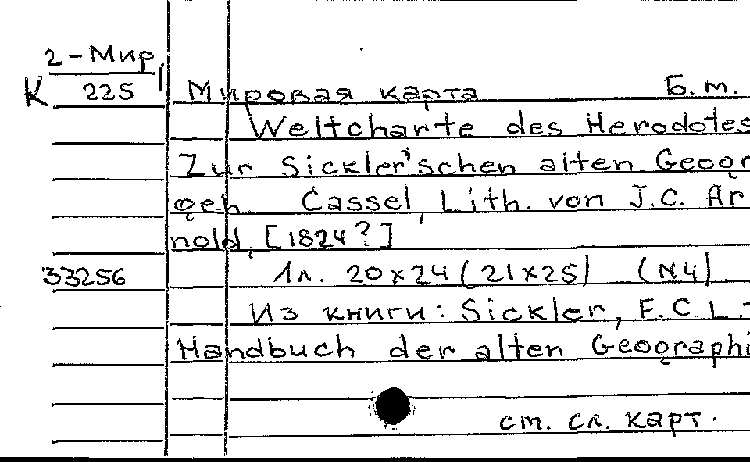 2-Мир
К 225 Мировая карта Б.м.
Weltcharte des Herodotes
Zur Sickler'schen alten Geogr
geh Cassel, Lith. von J.C. Ar
nold, [1824?]
33256 1л. 20x24 (21x25) (N4)
Из книги: Sickler, F.C.L.
Handbuch der alten Geographi
см. сл. карт.